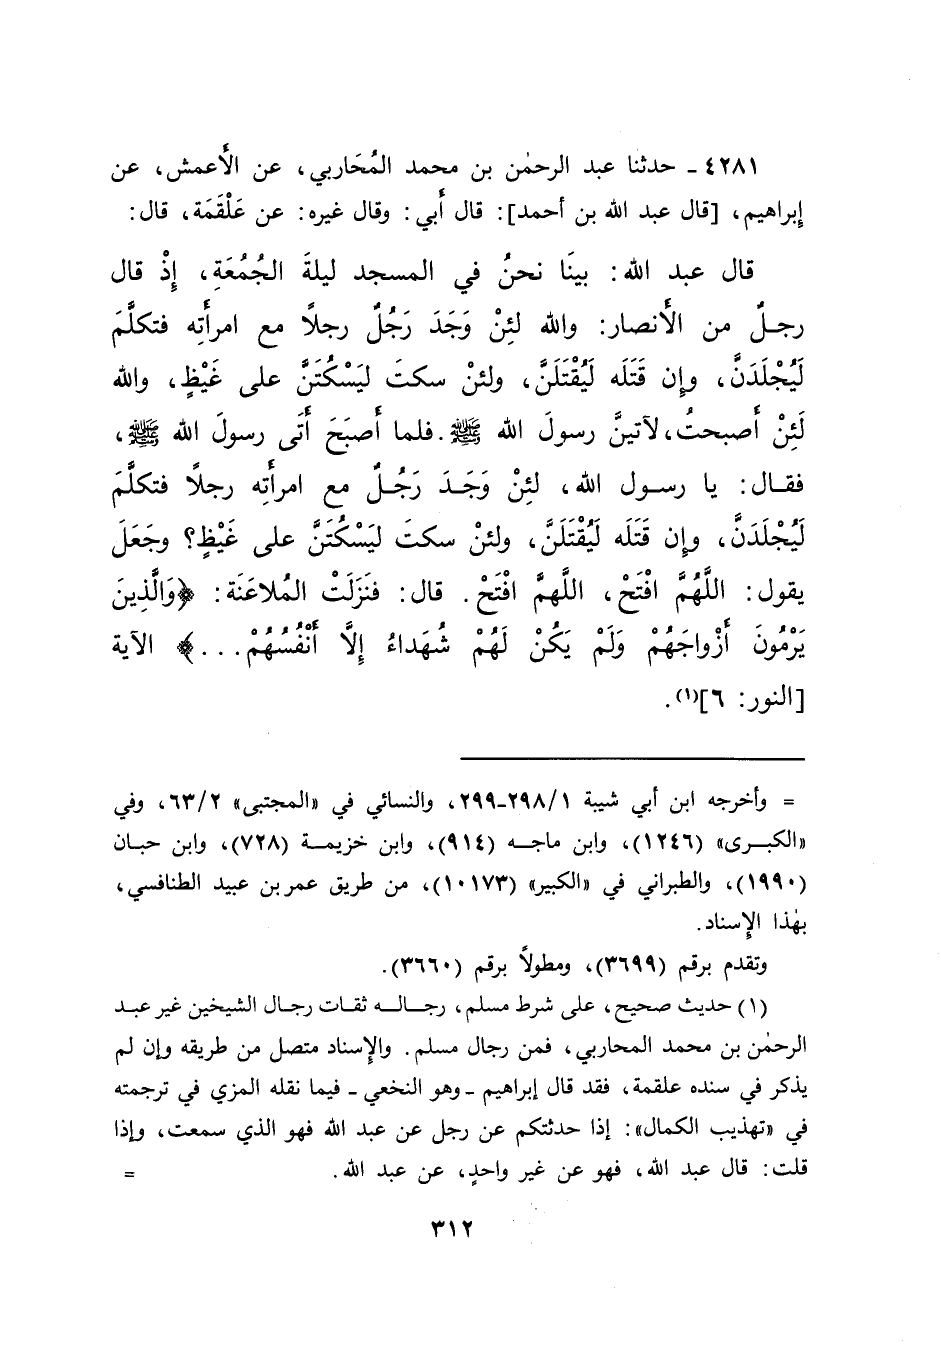 ٤٢٨١ ـ حدثنا عبد الرحمٰن بن محمد المُحَاربي، عن الأَعمش، عن
إبراهيم، [قال عبد الله بن أحمد]: قال أَبي: وقال غيره: عن عَلْقَمَة، قال:
قال عبد الله: بينَا نحنُ في المسجد ليلةَ الجُمُعَةِ، إِذْ قال
رجلٌ من الأَنصار: والله لئِنْ وَجَدَ رَجُلٌ رجلًا مع امرأَتِه فتكلَّمَ
لَيُجْلَدَنَّ، وإِن قَتَلَه لَيُقْتَلَنَّ، ولئنْ سكتَ لَيَسْكُتَنَّ على غَيْظٍ، والله
لَئِنْ أَصبحتُ، لآتينَّ رسولَ الله ﷺ. فلما أَصبَحَ أَتَى رسولَ الله ﷺ،
فقال: يا رسول الله، لئِنْ وَجَدَ رَجُلٌ مع امرأَتِه رجلًا فتكلَّمَ
لَيُجْلَدَنَّ، وإِن قَتَلَه لَيُقْتَلَنَّ، ولئنْ سكتَ لَيَسْكُتَنَّ على غَيْظٍ؟ وجَعَلَ
يقول: اللَّهُمَّ افْتَحْ، اللَّهمَّ افْتَحْ. قال: فنَزَلَتْ المُلاعَنَة: ﴿وَالَّذِينَ
يَرْمُونَ أَزْواجَهُمْ وَلَمْ يَكُنْ لَهُمْ شُهَداءُ إِلَّا أَنْفُسُهُمْ...﴾ الآية
[النور: ٦]⁽¹⁾.
= وأخرجه ابن أبي شيبة ٢٩٨/١-٢٩٩، والنسائي في «المجتبى» ٦٣/٢، وفي
«الكبرى» (١٢٤٦)، وابن ماجه (٩١٤)، وابن خزيمة (٧٢٨)، وابن حبان
(١٩٩٠)، والطبراني في «الكبير» (١٠١٧٣)، من طريق عمر بن عبيد الطنافسي،
بهٰذا الإِسناد.
وتقدم برقم (٣٦٩٩)، ومطولًا برقم (٣٦٦٠).
(١) حديث صحيح، على شرط مسلم، رجاله ثقات رجال الشيخين غير عبد
الرحمٰن بن محمد المحاربي، فمن رجال مسلم. والإِسناد متصل من طريقه وإن لم
يذكر في سنده علقمة، فقد قال إبراهيم ـ وهو النخعي ـ فيما نقله المزي في ترجمته
في «تهذيب الكمال»: إذا حدثتكم عن رجل عن عبد الله فهو الذي سمعت، وإذا
قلت: قال عبد الله، فهو عن غير واحدٍ، عن عبد الله. =
٣١٢